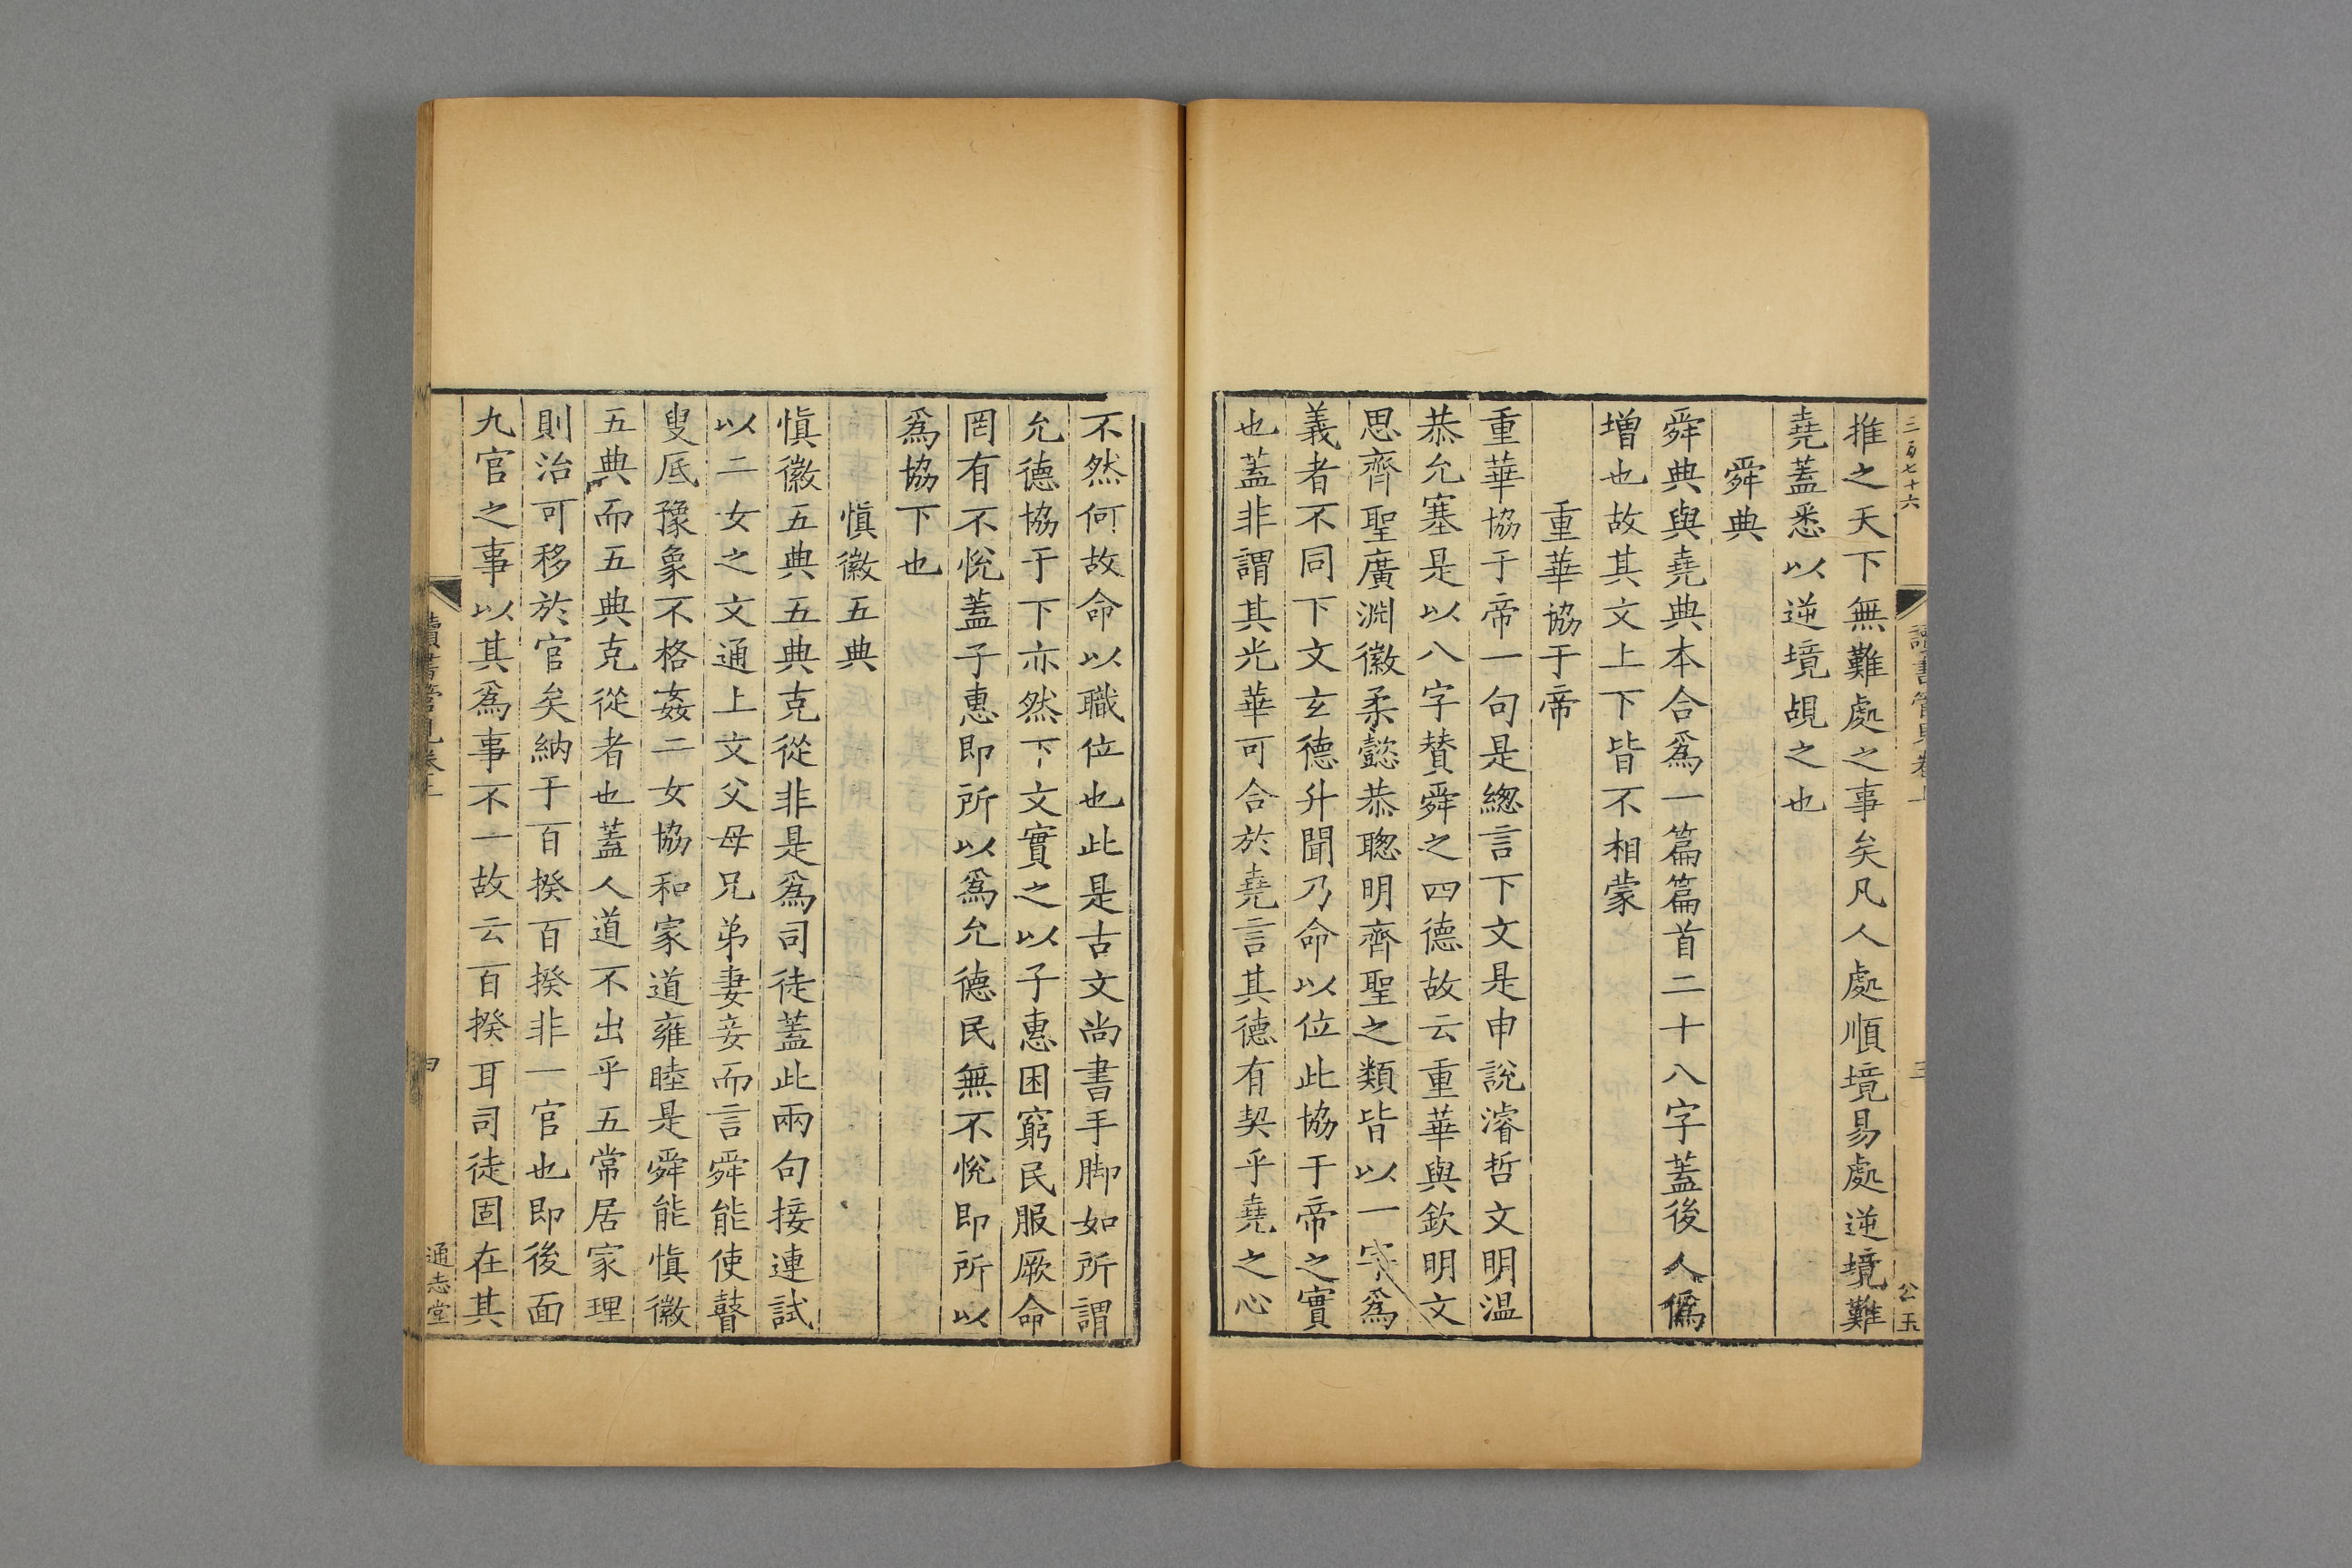 三百七十六
讀書管見卷上
三
公玉
推之天下無難處之事矣凡人處順境易處逆境難
堯蓋悉以逆境覘之也
舜典
舜典與堯典本合爲一篇篇首二十八字蓋後人僞
增也故其文上下皆不相蒙
重華協于帝
重華協于帝一句是總言下文是申說濬哲文明温
恭允塞是以八字賛舜之四德故云重華與欽明文
思齊聖廣淵徽柔懿恭聰明齊聖之類皆以一字爲
義者不同下文玄德升聞乃命以位此協于帝之實
也蓋非謂其光華可合於堯言其德有契乎堯之心
不然何故命以職位也此是古文尚書手脚如所謂
允德協于下亦然下文實之以子惠困窮民服厥命
罔有不悅蓋子惠即所以爲允德民無不悅即所以
爲協下也
愼徽五典
愼徽五典五典克從非是爲司徒蓋此兩句接連試
以二女之文通上文父母兄弟妻妾而言舜能使瞽
叟厎豫象不格姦二女協和家道雍睦是舜能愼徽
五典而五典克從者也蓋人道不出乎五常居家理
則治可移於官矣納于百揆百揆非一官也即後面
九官之事以其爲事不一故云百揆耳司徒固在其
讀書管見卷上
通志堂